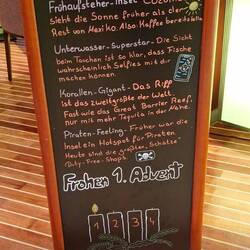 Frühaufsteher-Insel COZUMEL
sieht die Sonne früher als der
Rest von Mexiko Also: Kaffee bereithalten
Unterwasser-Superstar- Die Sicht
beim Tauchen ist so klar, dass Fische
wahrscheinlich Selfies mit dir
machen können.
Korallen-Gigant - Das Riff
ist das zweitgrößte der Welt.
Fast wie das Great Barrier Reef,
nur mit mehr Tequila in der Nähe.
Piraten-Feeling - Früher war die
Insel ein Hotspot für Piraten.
Heute sind die größten "Schätze"
Duty-Free-Shops
Frohen 1. Advent
1 2 3 4